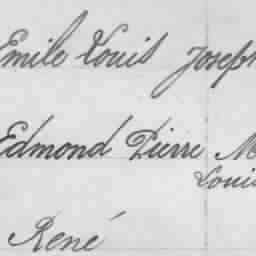 Emile Louis Joseph
Edmond Pierre M
Louis
René